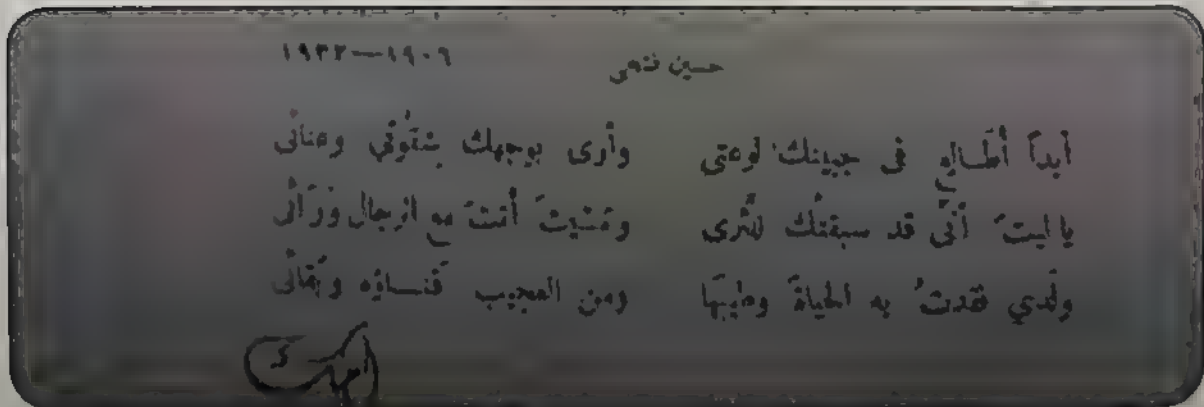 حسين فتحى ١٩٠٦—١٩٣٢
أبداً أُطَـالع فى جبينك لوعتى وأرى بوجهك شقوتي وهنائى
يا ليتَ أنّى قد سبقتُك للثرى ومشيتَ أنتَ مع الرجال وَرَائى
ولَدي فقدتُ به الحياةَ وطيبَها ومن العجيب فَنـاؤه وبَقائى